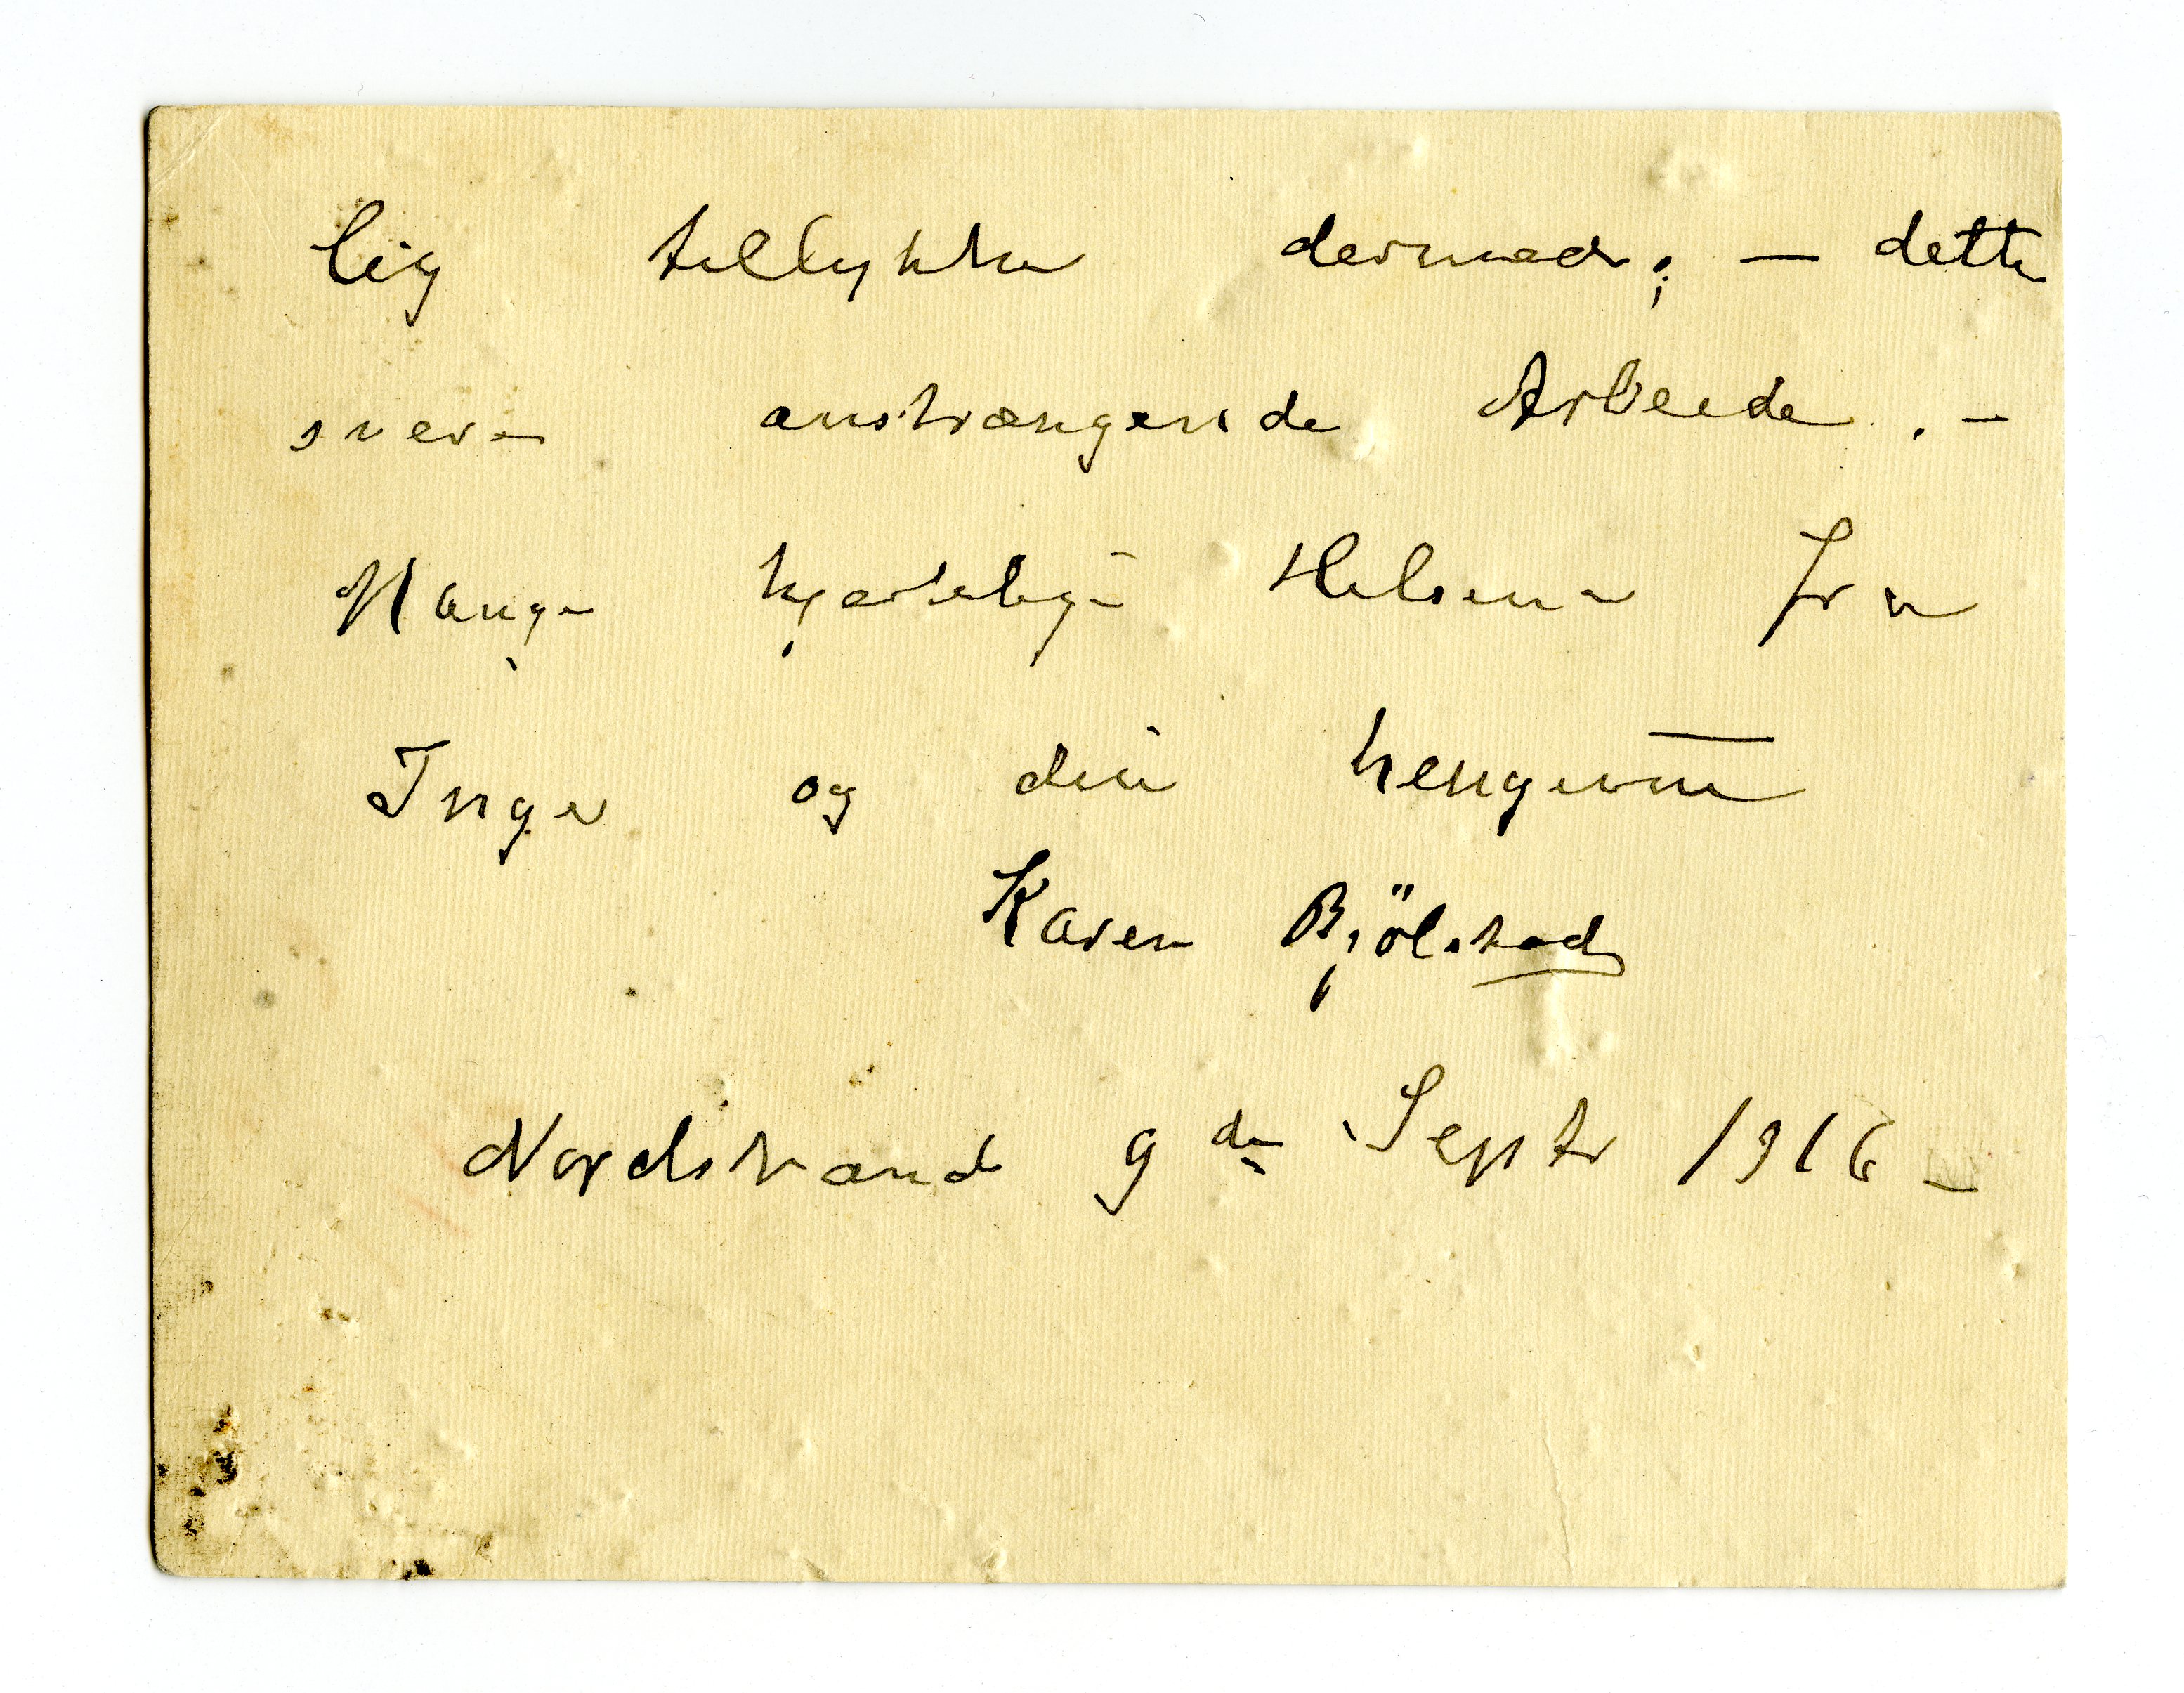 lig tillykke dermed; — dette
svære anstrængende Arbeide. –
Mange hjertelige Hilsener fra
Inger og din hengivne
Karen Bjölstad
Nordstrand 9de Septr 1916 –